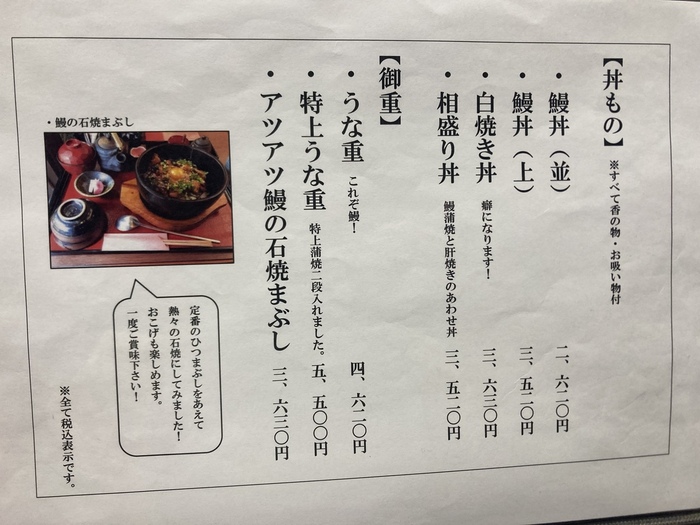 【丼もの】 ※すべて香の物・お吸い物付
・鰻丼（並） 二、六二〇円
・鰻丼（上） 三、五二〇円
・白焼き丼 癖になります！ 三、六三〇円
・相盛り丼 鰻蒲焼と肝焼きのあわせ丼 三、五二〇円
【御重】
・うな重 これぞ鰻！ 四、六二〇円
・特上うな重 特上蒲焼二段入れました。 五、五〇〇円
・アツアツ鰻の石焼まぶし 三、六三〇円
・鰻の石焼まぶし
定番のひつまぶしをあえて
熱々の石焼にしてみました！
おこげも楽しめます。
一度ご賞味下さい！
※全て税込表示です。